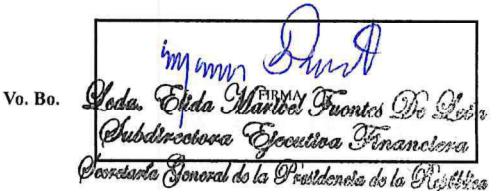 Vo. Bo.
FIRMA
Licda. Elida Maricel Fuentes De León
Subdirectora Ejecutiva Financiera
Secretaría General de la Presidencia de la República